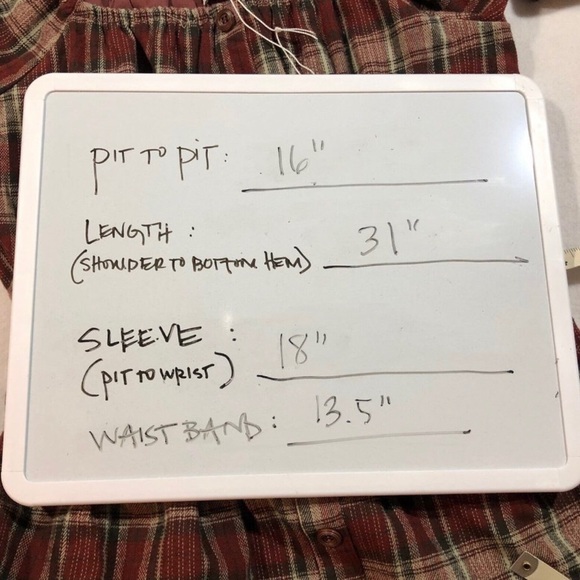 PIT TO PIT: 16"
LENGTH : 31"
(SHOULDER TO BOTTOM HEM)
SLEEVE : 18"
(PIT TO WRIST)
WAIST BAND: 13.5"